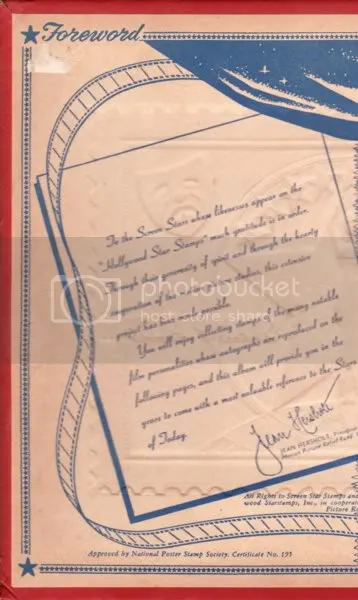 Foreword
To the Screen Stars whose likenesses appear on the
"Hollywood Star Stamps" much gratitude is in order.
Through their generosity of spirit and through the hearty
of the various studios, this extensive
project has been made possible.
You will enjoy collecting stamps of the many notable
film personalities whose autographs are reproduced on the
following pages, and this album will provide you in the
years to come with a most valuable reference to the Stars
of Today.
Jean Hersholt
JEAN HERSHOLT, President
Motion Picture Relief Fund
All Rights to Screen Star Stamps and
wood Starstamps, Inc., in cooperat
Picture R
Approved by National Poster Stamp Society. Certificate No. 155
photobucket
host. store. share